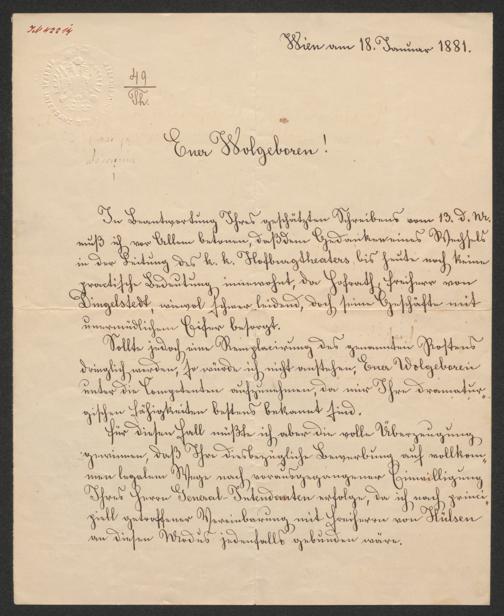 49
Th.
Wien am 18. Januar 1881.
Euer Wolgeboren!
In Beantwortung Ihres geschätzten Schreibens vom 13. d. Mt.
muß ich vor Allem betonen, daß dem Gedanken eines Wechsels
in der Leitung des k. k. Hofburgtheaters bis heute noch keine
practische Bedeutung innewohnt, da Hofrath Freiherr von
Dingelstedt, wiewol schwer leidend, doch seine Geschäfte mit
unermüdlichem Eifer besorgt.
Sollte jedoch eine Remplacirung des genannten Postens
dringlich werden, so würde ich nicht anstehen, Euer Wolgeboren
unter die Competenten aufzunehmen, da mir Ihre dramatur-
gischen Fähigkeiten bestens bekannt sind.
Für diesen Fall müßte ich aber die volle Überzeugung
gewinnen, daß Ihre diesbezügliche Bewerbung auf vollkom-
men legalem Wege nach vorausgegangener Einwilligung
Ihres Herrn General Intendanten erfolge, da ich nach princi-
piell getroffener Vereinbarung mit Freiherrn von Hülsen
an diesen Modus jedenfalls gebunden wäre.